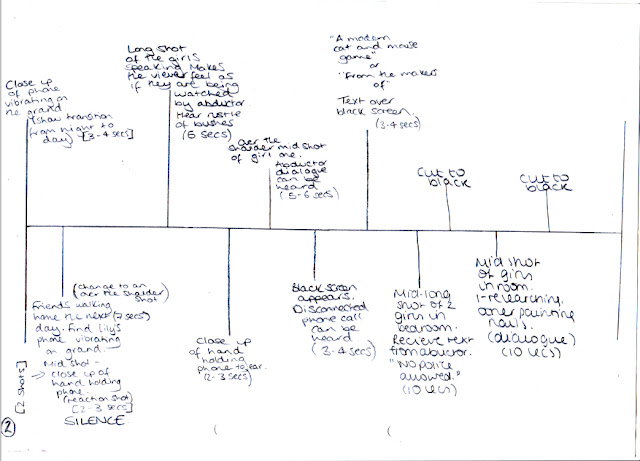 Close up
of phone
vibrating on
the grand
(show transition
from night to
day) [3-4 secs]
Long shot
of the girls
speaking makes
the viewer feel as
if they are being
watched
by abductor
Hear rustle
of bushes
(6 secs)
over the
shoulder mid shot
of girl one.
Abductor
dialogue
can be
heard
(5-6 secs)
"A modern
cat and mouse
game"
or
"From the makers
of"
Text over
black screen.
(3-4 secs)
Cut to
black
Cut to
black
(change to an
over the shoulder
shot)
Friends walking
home the next (7 secs)
day. find lily's
phone vibrating
on grand.
Mid shot -
Close up of
hand holding
phone.
(reaction shot)
[2-3 secs]
SILENCE
[2 shots]
2
Close up
of hand
holding
phone to ear.
(2-3 secs)
Black screen
appears.
Disconnected
phone call
can be
heard
(3-4 secs)
Mid-long
shot of 2
girls in
bedroom.
Recieve text
from abuctor.
"No police
allowed."
(10 secs)
Mid shot
of girls
in room.
1-researching.
other painting
nails.
(dialogue)
(10 secs)